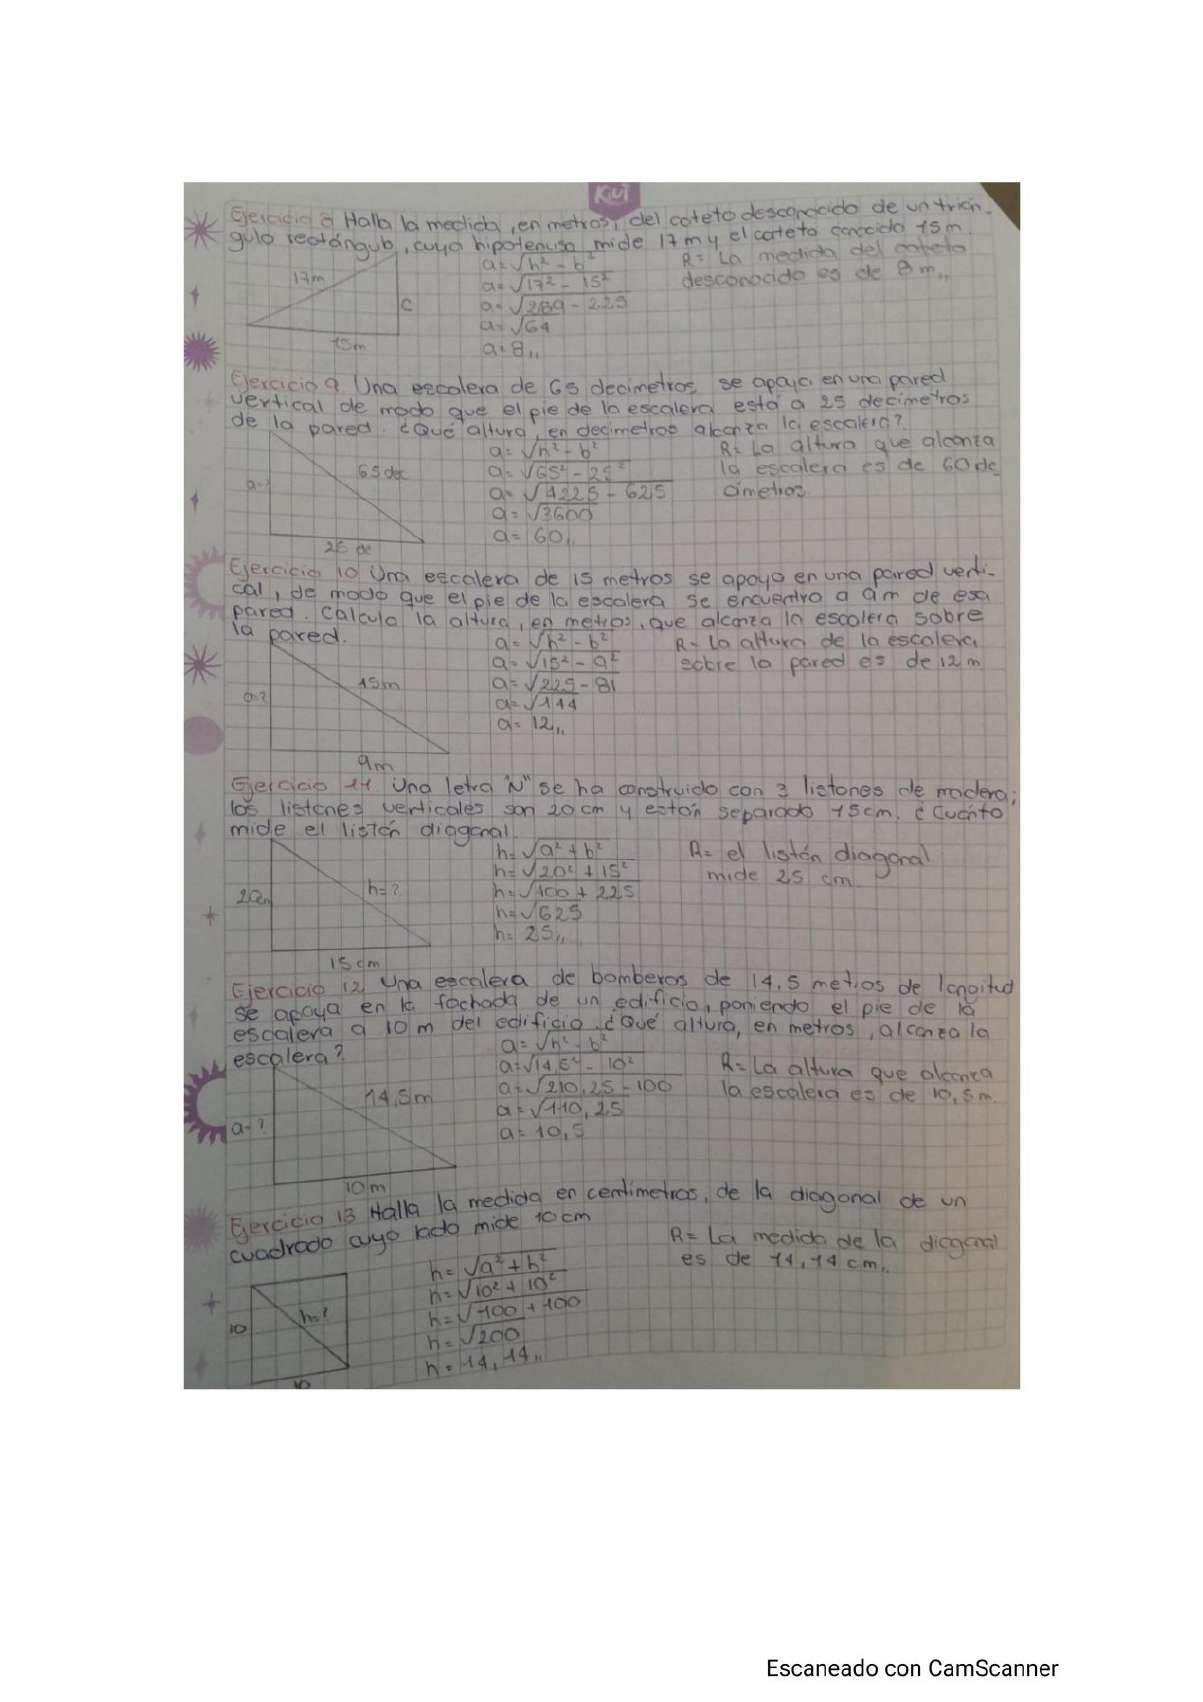 KUT
Ejercicio 8 Halla la medida, en metros, del cateto desconocido de un trián-
gulo rectángulo, cuya hipotenusa mide 17 m y el cateto conocido 15 m.
17m
c
15m
a=√h² - b²
a=√17² - 15²
a=√289 - 225
a=√64
a=8,,
R= La medida del cateto
desconocido es de 8 m,,
Ejercicio 9 Una escalera de 65 decimetros se apoya en una pared
vertical de modo que el pie de la escalera está a 25 decimetros
de la pared. ¿Qué altura, en decimetros alcanza la escalera?
65 dec
a=?
25 dc
a=√h² - b²
a=√65² - 25²
a=√4225 - 625
a=√3600
a= 60,,
R= La altura que alcanza
la escalera es de 60 de
cimetros
Ejercicio 10 Una escalera de 15 metros se apoya en una pared verti-
cal, de modo que el pie de la escalera se encuentra a 9m de esa
pared. Calcula la altura, en metros, que alcanza la escalera sobre
la pared.
15m
a=?
9m
a=√h² - b²
a=√15² - 9²
a=√225 - 81
a=√144
a= 12,,
R= La altura de la escalera
sobre la pared es de 12 m
Ejercicio 11 Una letra "N" se ha construido con 3 listones de madera;
los listones verticales son 20 cm y están separado 15cm. ¿Cuánto
mide el listón diagonal.
20cm
h=?
15cm
h=√a² + b²
h=√20² + 15²
h=√400 + 225
h=√625
h= 25,,
R= el listón diagonal
mide 25 cm
Ejercicio 12 Una escalera de bomberos de 14,5 metros de longitud
se apoya en la fachada de un edificio, poniendo el pie de la
escalera a 10 m del edificio. ¿Qué altura, en metros, alcanza la
escalera?
14,5m
a=?
10m
a=√h² - b²
a=√14,5² - 10²
a=√210,25 - 100
a=√110,25
a= 10,5
R= La altura que alcanza
la escalera es de 10,5 m.
Ejercicio 13 Halla la medida en centímetros, de la diagonal de un
cuadrado cuyo lado mide 10 cm
10
h=?
10
h=√a² + b²
h=√10² + 10²
h=√100 + 100
h=√200
h= 14,14,,
R= La medida de la diagonal
es de 14,14 cm,,
Escaneado con CamScanner